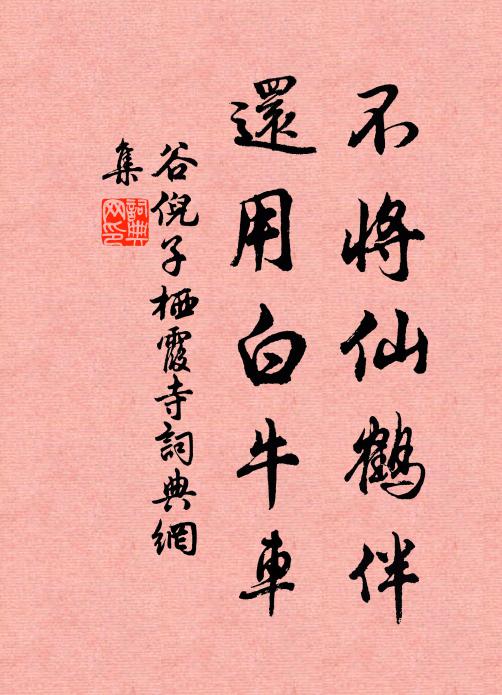 不將仙鶴伴
還用白牛車
谷倪子栖霞寺詞典網
集
詞典網印